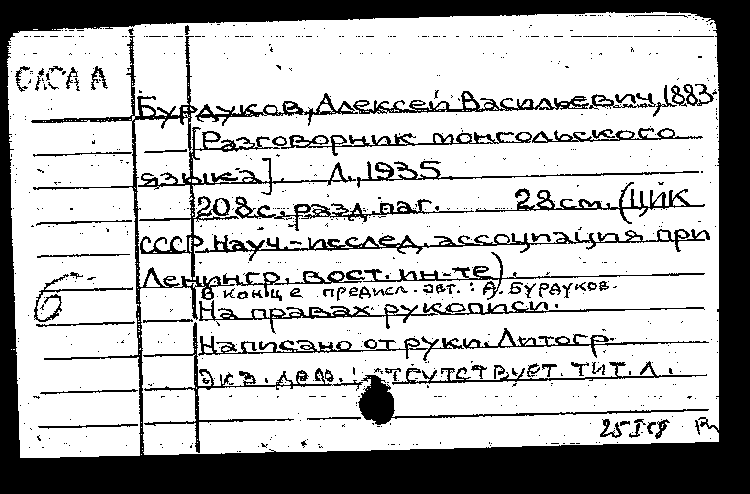 Бурдуков, Алексей Васильевич, 1883-
[Разговорник монгольского
языка]. Л., 1935.
208 с. разд. паг. 28 см. (ЦИК
СССР. Науч.-исслед. ассоциация при
Ленингр. вост. ин-те).
В конце предисл. авт.: А. Бурдуков.
На правах рукописи.
Написано от руки. Литогр.
Экз. деф.: отсутствует тит. л.
б